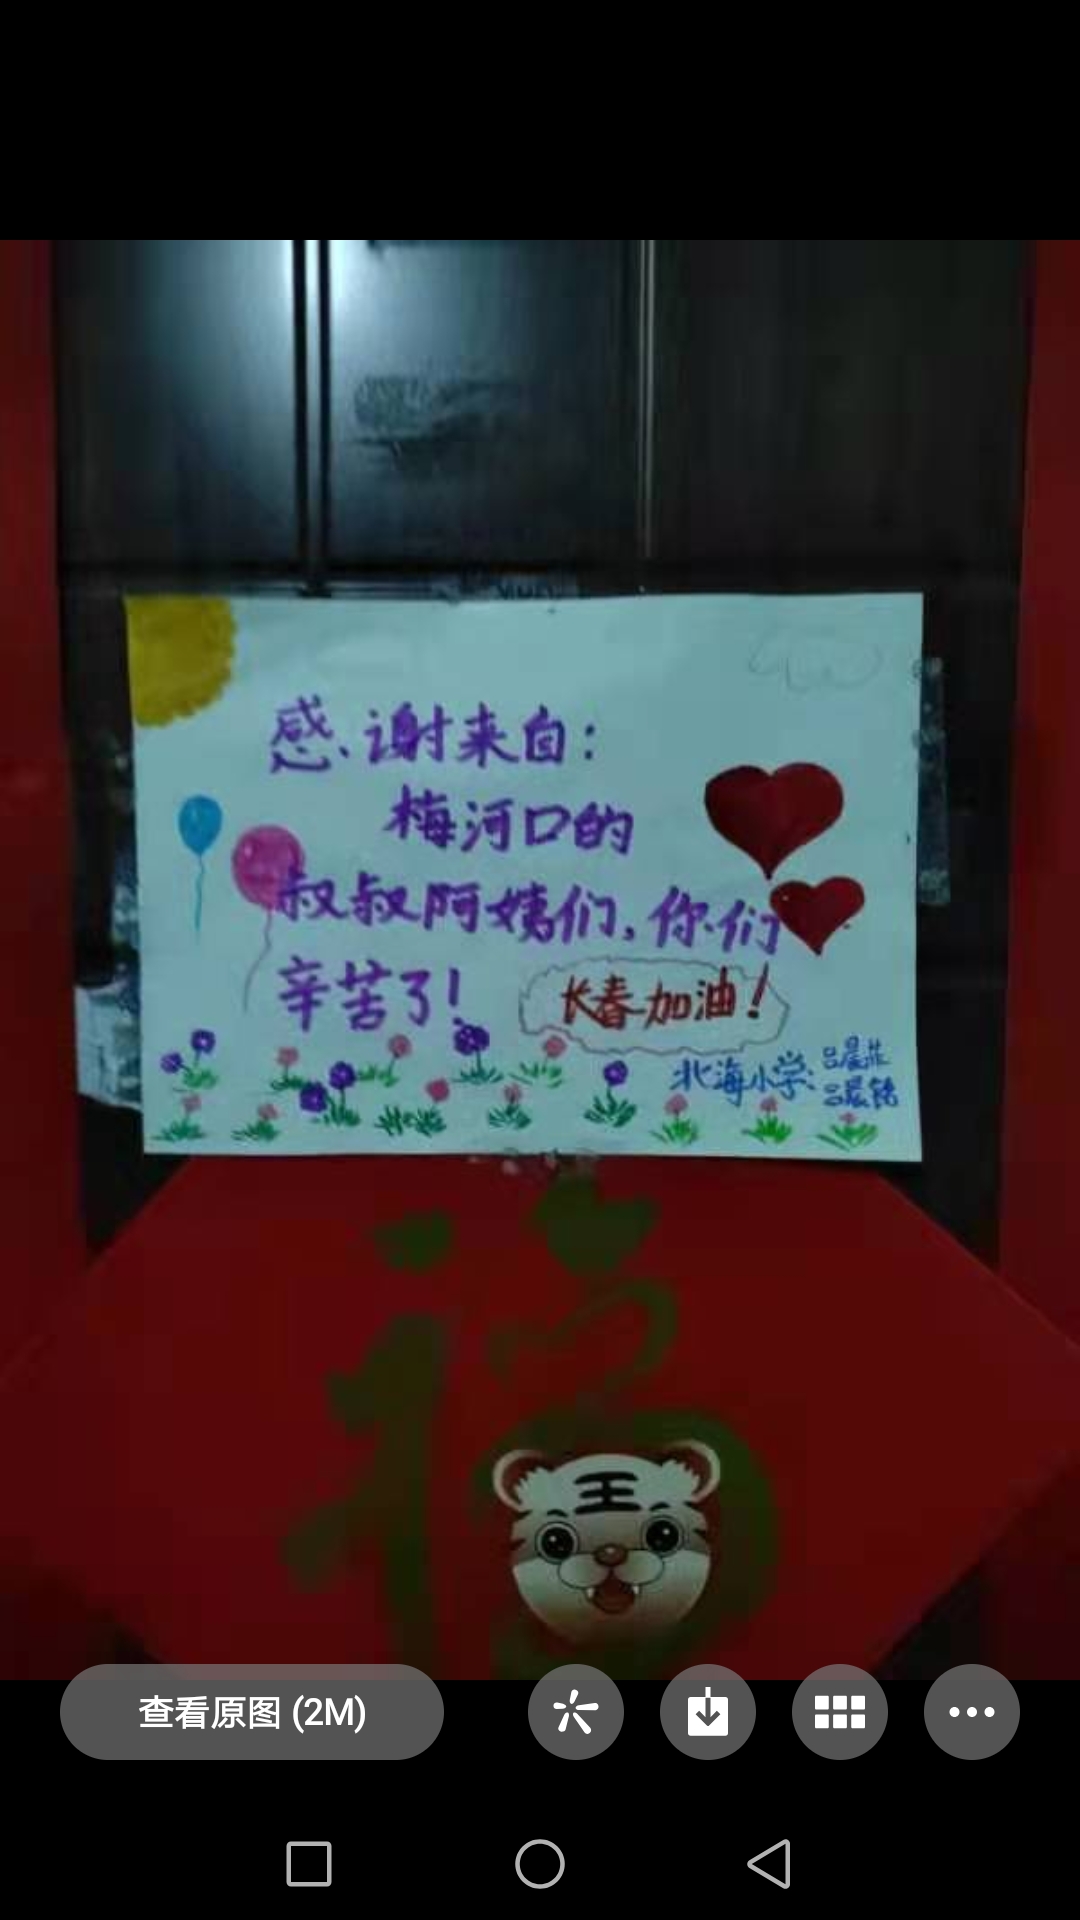 感谢来自：
梅河口的
叔叔阿姨们，你们
辛苦了！
长春加油！
北海小学：
王
查看原图 (2M)